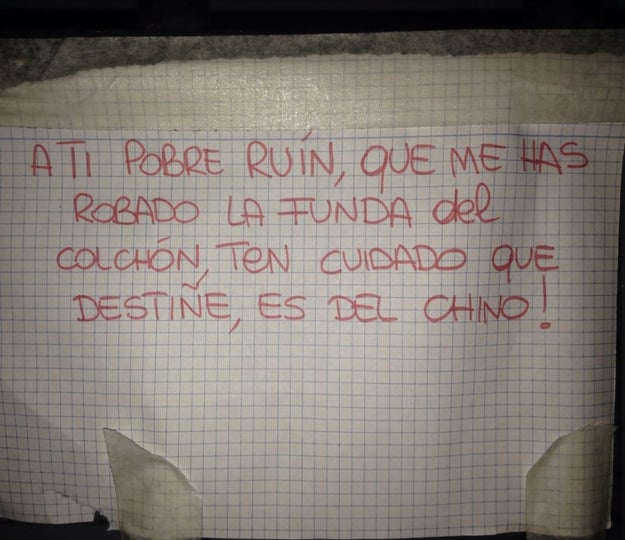 A TI POBRE RUÍN, QUE ME HAS
ROBADO LA FUNDA del
COLCHÓN, TEN CUIDADO QUE
DESTIÑE, ES DEL CHINO!